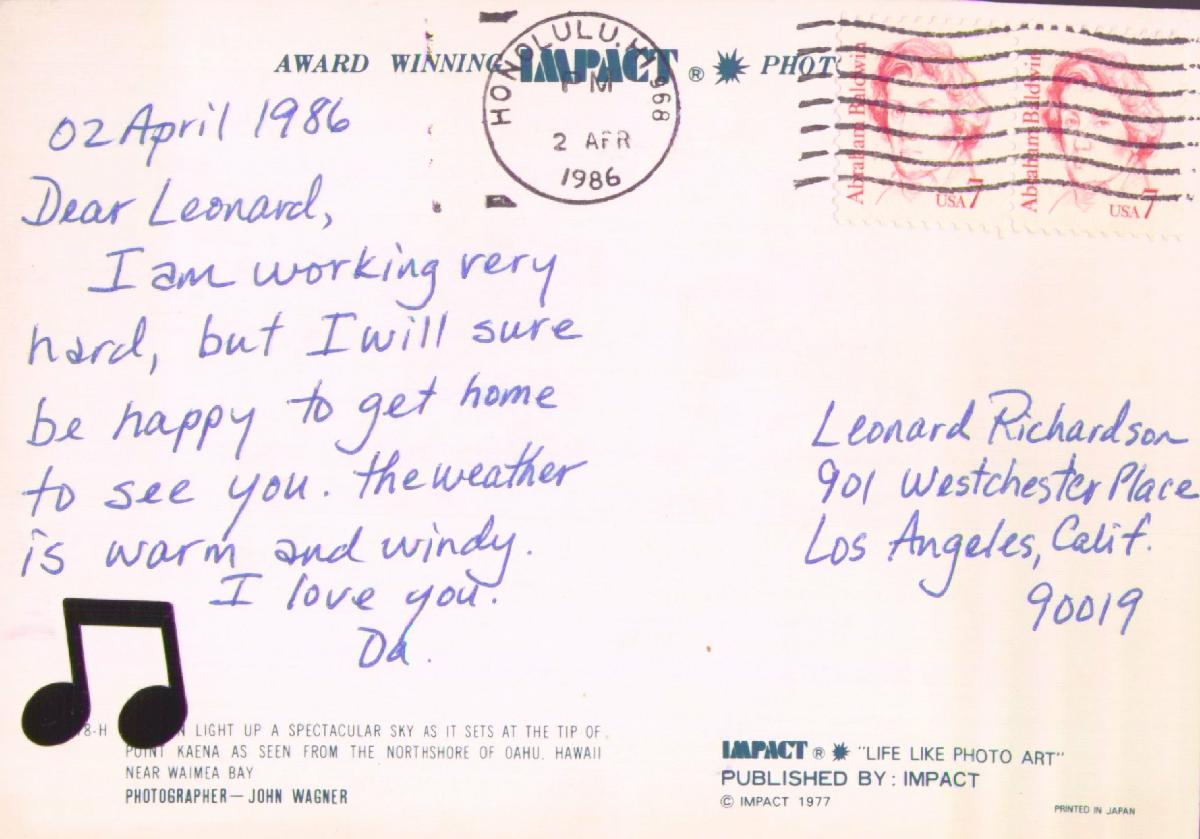 AWARD WINNING IMPACT ® PHOT
HONOLULU, HI 968
PM
2 APR
1986
Abraham Baldwin
USA 7
Abraham Baldwin
USA 7
02 April 1986
Dear Leonard,
I am working very
hard, but I will sure
be happy to get home
to see you. the weather
is warm and windy.
I love you.
Da.
Leonard Richardson
901 Westchester Place
Los Angeles, Calif.
90019
8-H LIGHT UP A SPECTACULAR SKY AS IT SETS AT THE TIP OF
POINT KAENA AS SEEN FROM THE NORTHSHORE OF OAHU, HAWAII
NEAR WAIMEA BAY
PHOTOGRAPHER — JOHN WAGNER
IMPACT ® "LIFE LIKE PHOTO ART"
PUBLISHED BY: IMPACT
© IMPACT 1977
PRINTED IN JAPAN